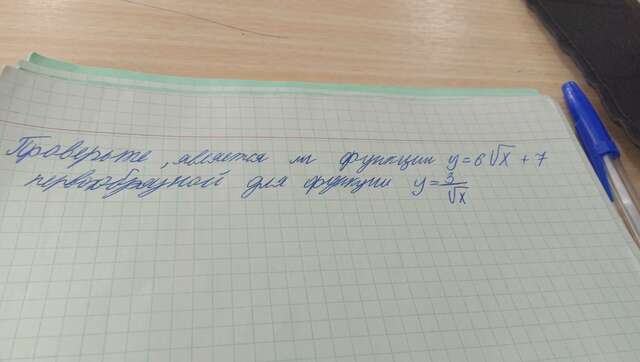 Проверьте, является ли функции y=6√x + 7
первообразной для функции y=3/√x